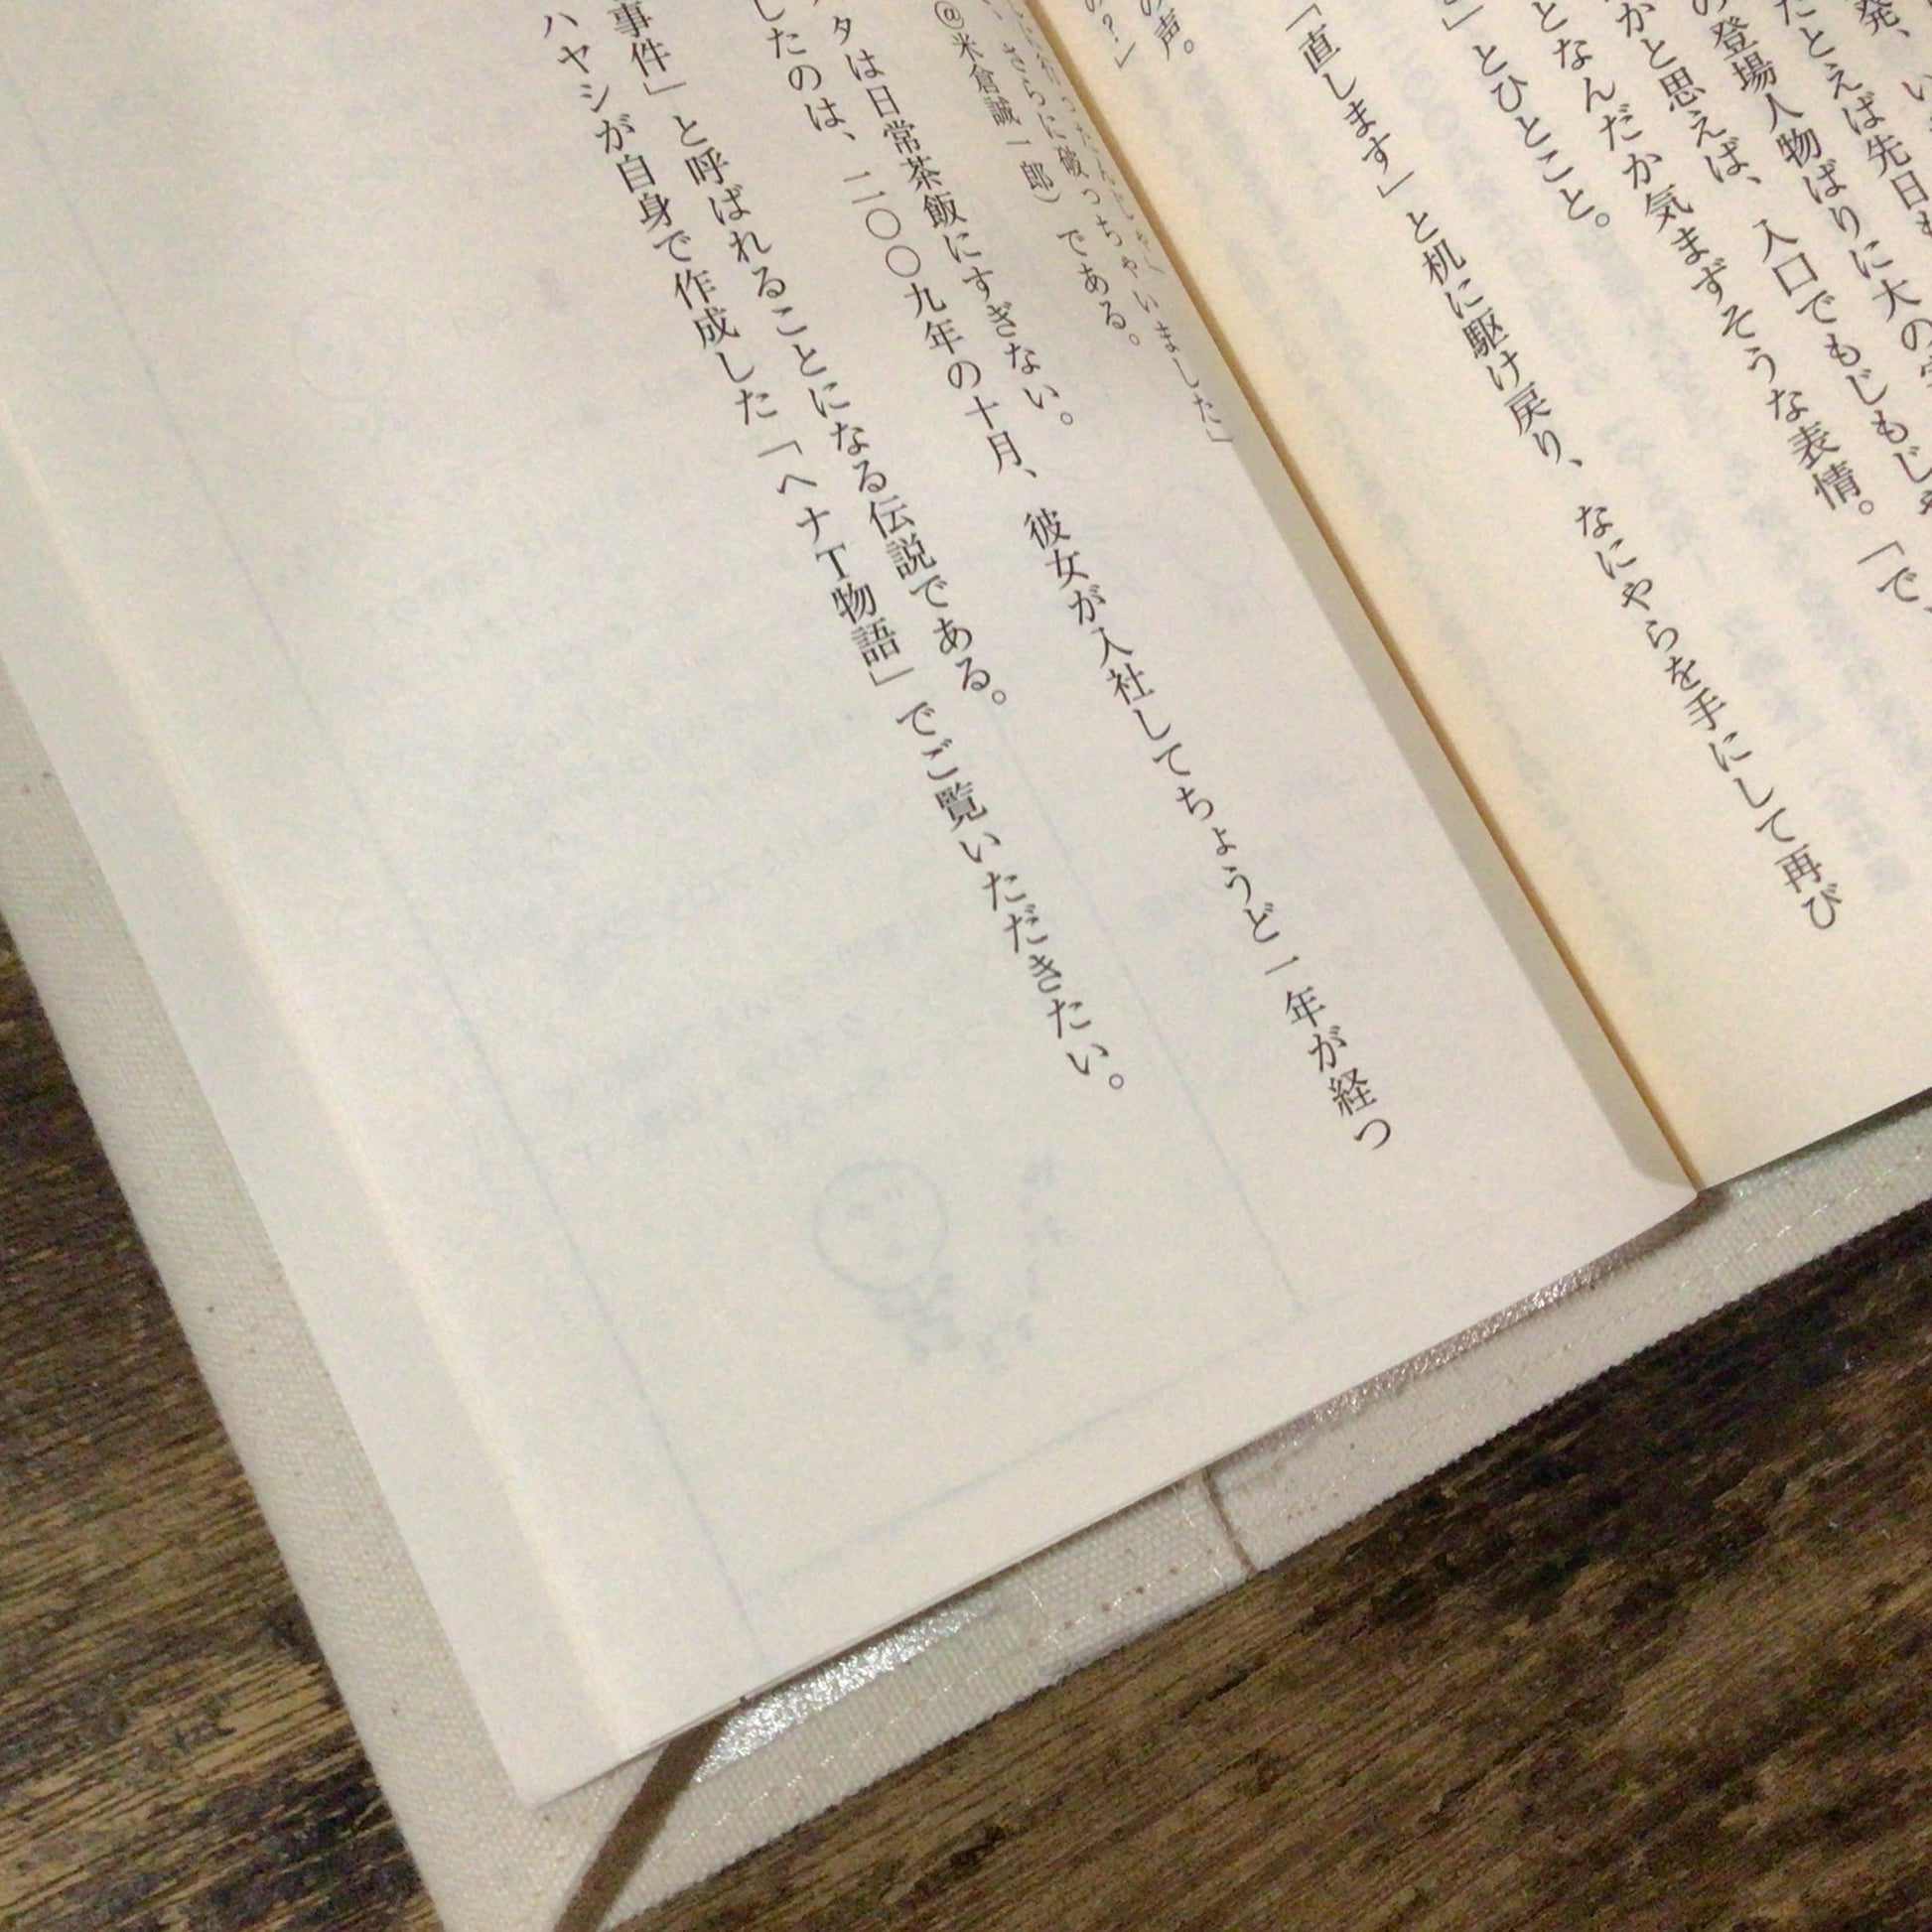 発、い
たとえば先日も
の登場人物ばりに大の字
かと思えば、入口でもじもじ
となんだか気まずそうな表情。「で、
」とひとこと。
「直します」と机に駆け戻り、なにやらを手にして再び
の声。
の?」
さらに破っちゃいました」
@米倉誠一郎)である。
タは日常茶飯にすぎない。
したのは、二〇〇九年の十月、彼女が入社してちょうど一年が経つ
事件」と呼ばれることになる伝説である。
ハヤシが自身で作成した「ヘナT物語」でご覧いただきたい。